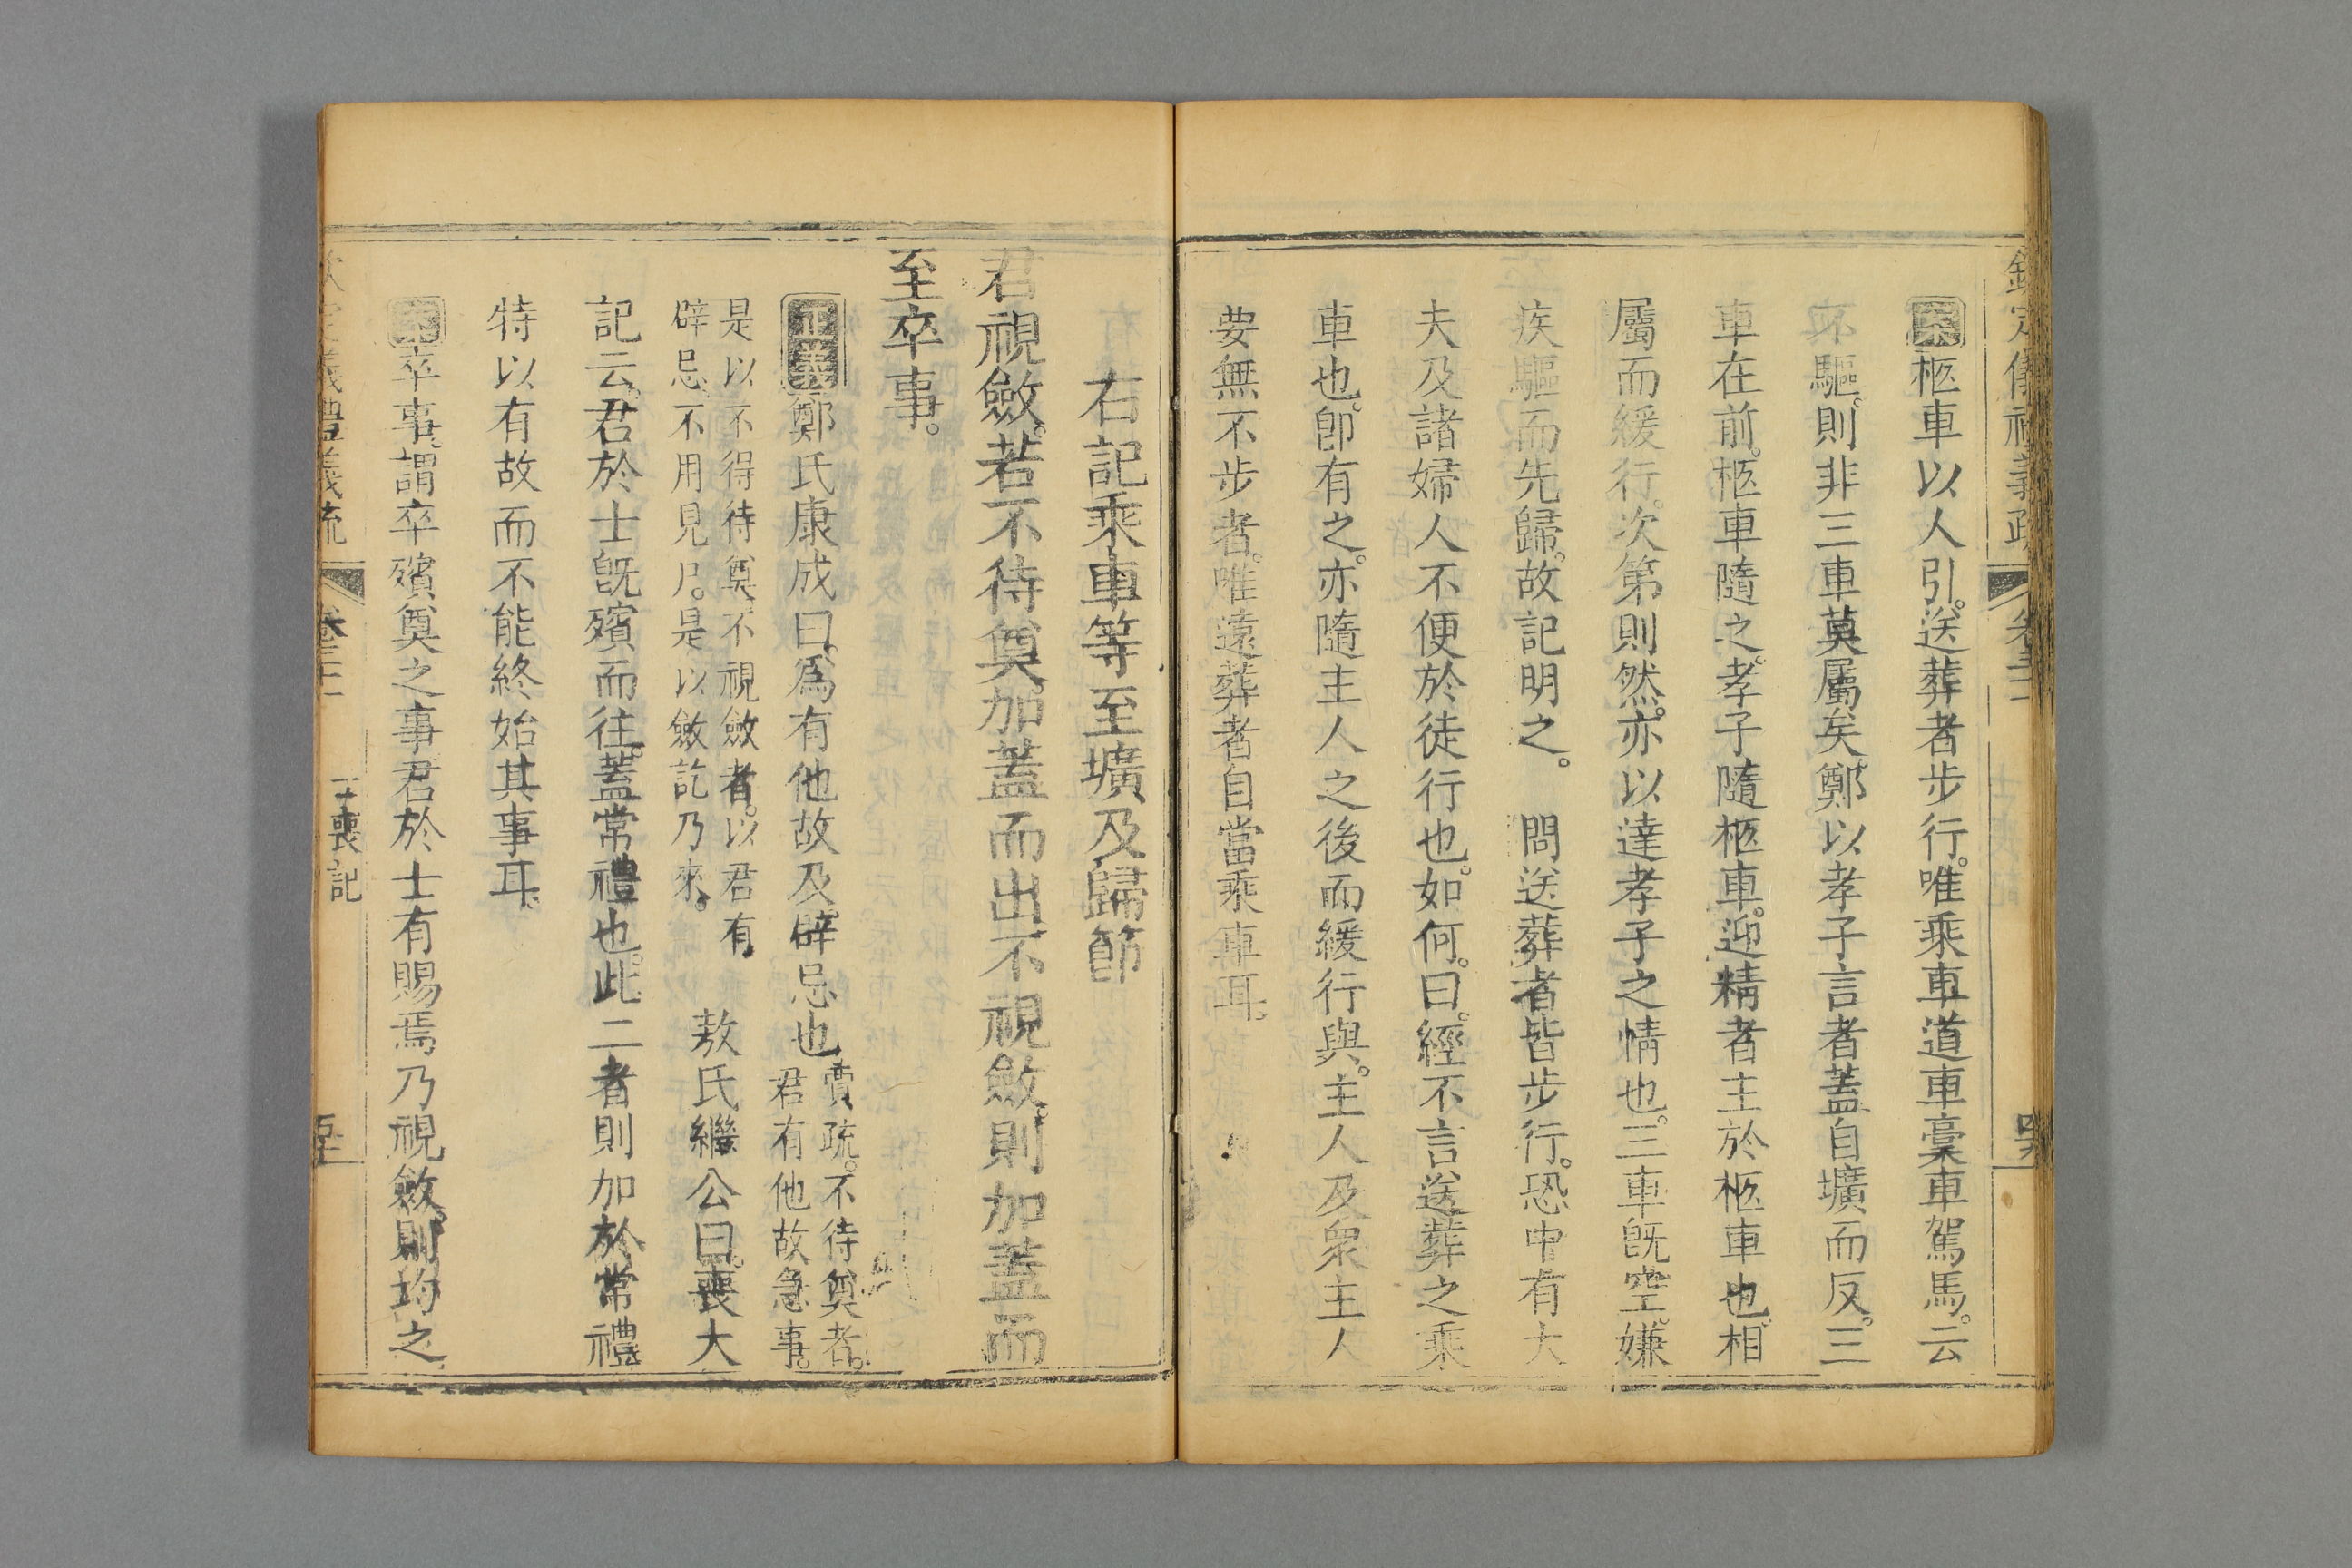 欽定儀禮義疏 卷三十一
案柩車以人引送葬者步行。唯乘車道車稾車駕馬。云
不驅。則非三車莫屬矣。鄭以孝子言者蓋自壙而反。三
車在前。柩車隨之。孝子隨柩車。迎精者主於柩車也。相
屬而緩行。次第則然。亦以達孝子之情也。三車旣空。嫌
疾驅而先歸。故記明之。 問送葬者皆步行。恐中有大
夫及諸婦人不便於徒行也。如何。曰。經不言送葬之乘
車也。卽有之。亦隨主人之後而緩行與。主人及衆主人
要無不步者。唯遠葬者自當乘車耳。
右記乘車等至壙及歸節
君視斂。若不待奠。加蓋而出。不視斂。則加蓋而
至卒事。
正義鄭氏康成曰。爲有他故及辟忌也
賈疏。不待奠者。
君有他故急事。
是以不得待奠不視斂者。以君有
辟忌。不用見尸。是以斂訖乃來。
敖氏繼公曰。喪大
記云。君於士旣殯而往。蓋常禮也。此二者則加於常禮
特以有故而不能終始其事耳。
案卒事。謂卒殯奠之事君於士有賜焉乃視斂。則均之
欽定儀禮義疏 卷三十一 士喪記